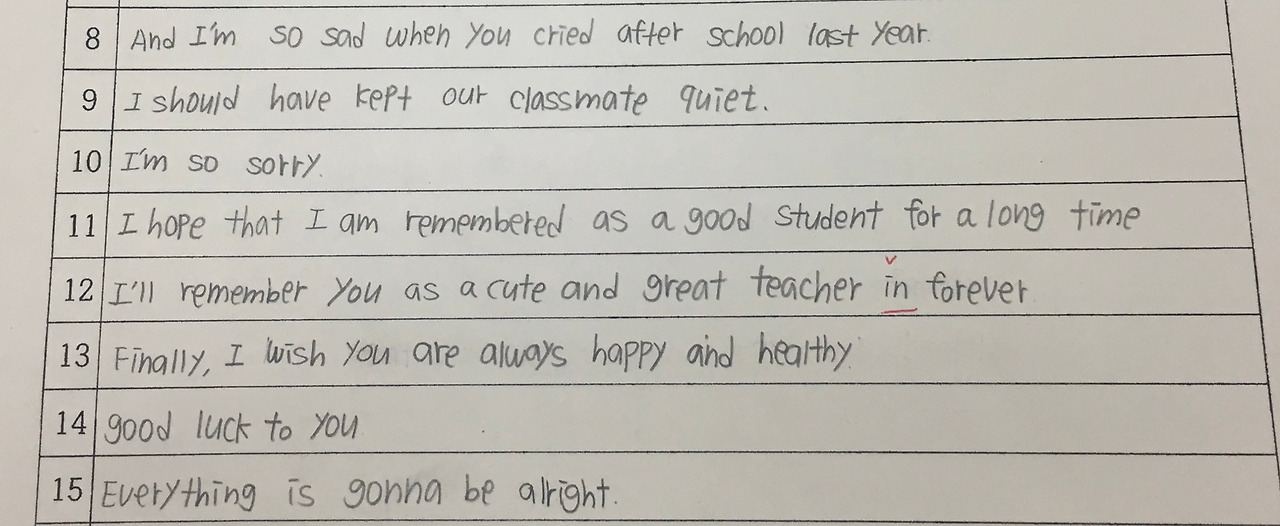 8 And I'm so sad when you cried after school last year.
9 I should have kept our classmate quiet.
10 I'm so sorry.
11 I hope that I am remembered as a good student for a long time
12 I'll remember you as a cute and great teacher in forever
13 Finally, I wish you are always happy and healthy.
14 good luck to you
15 Everything is gonna be alright.